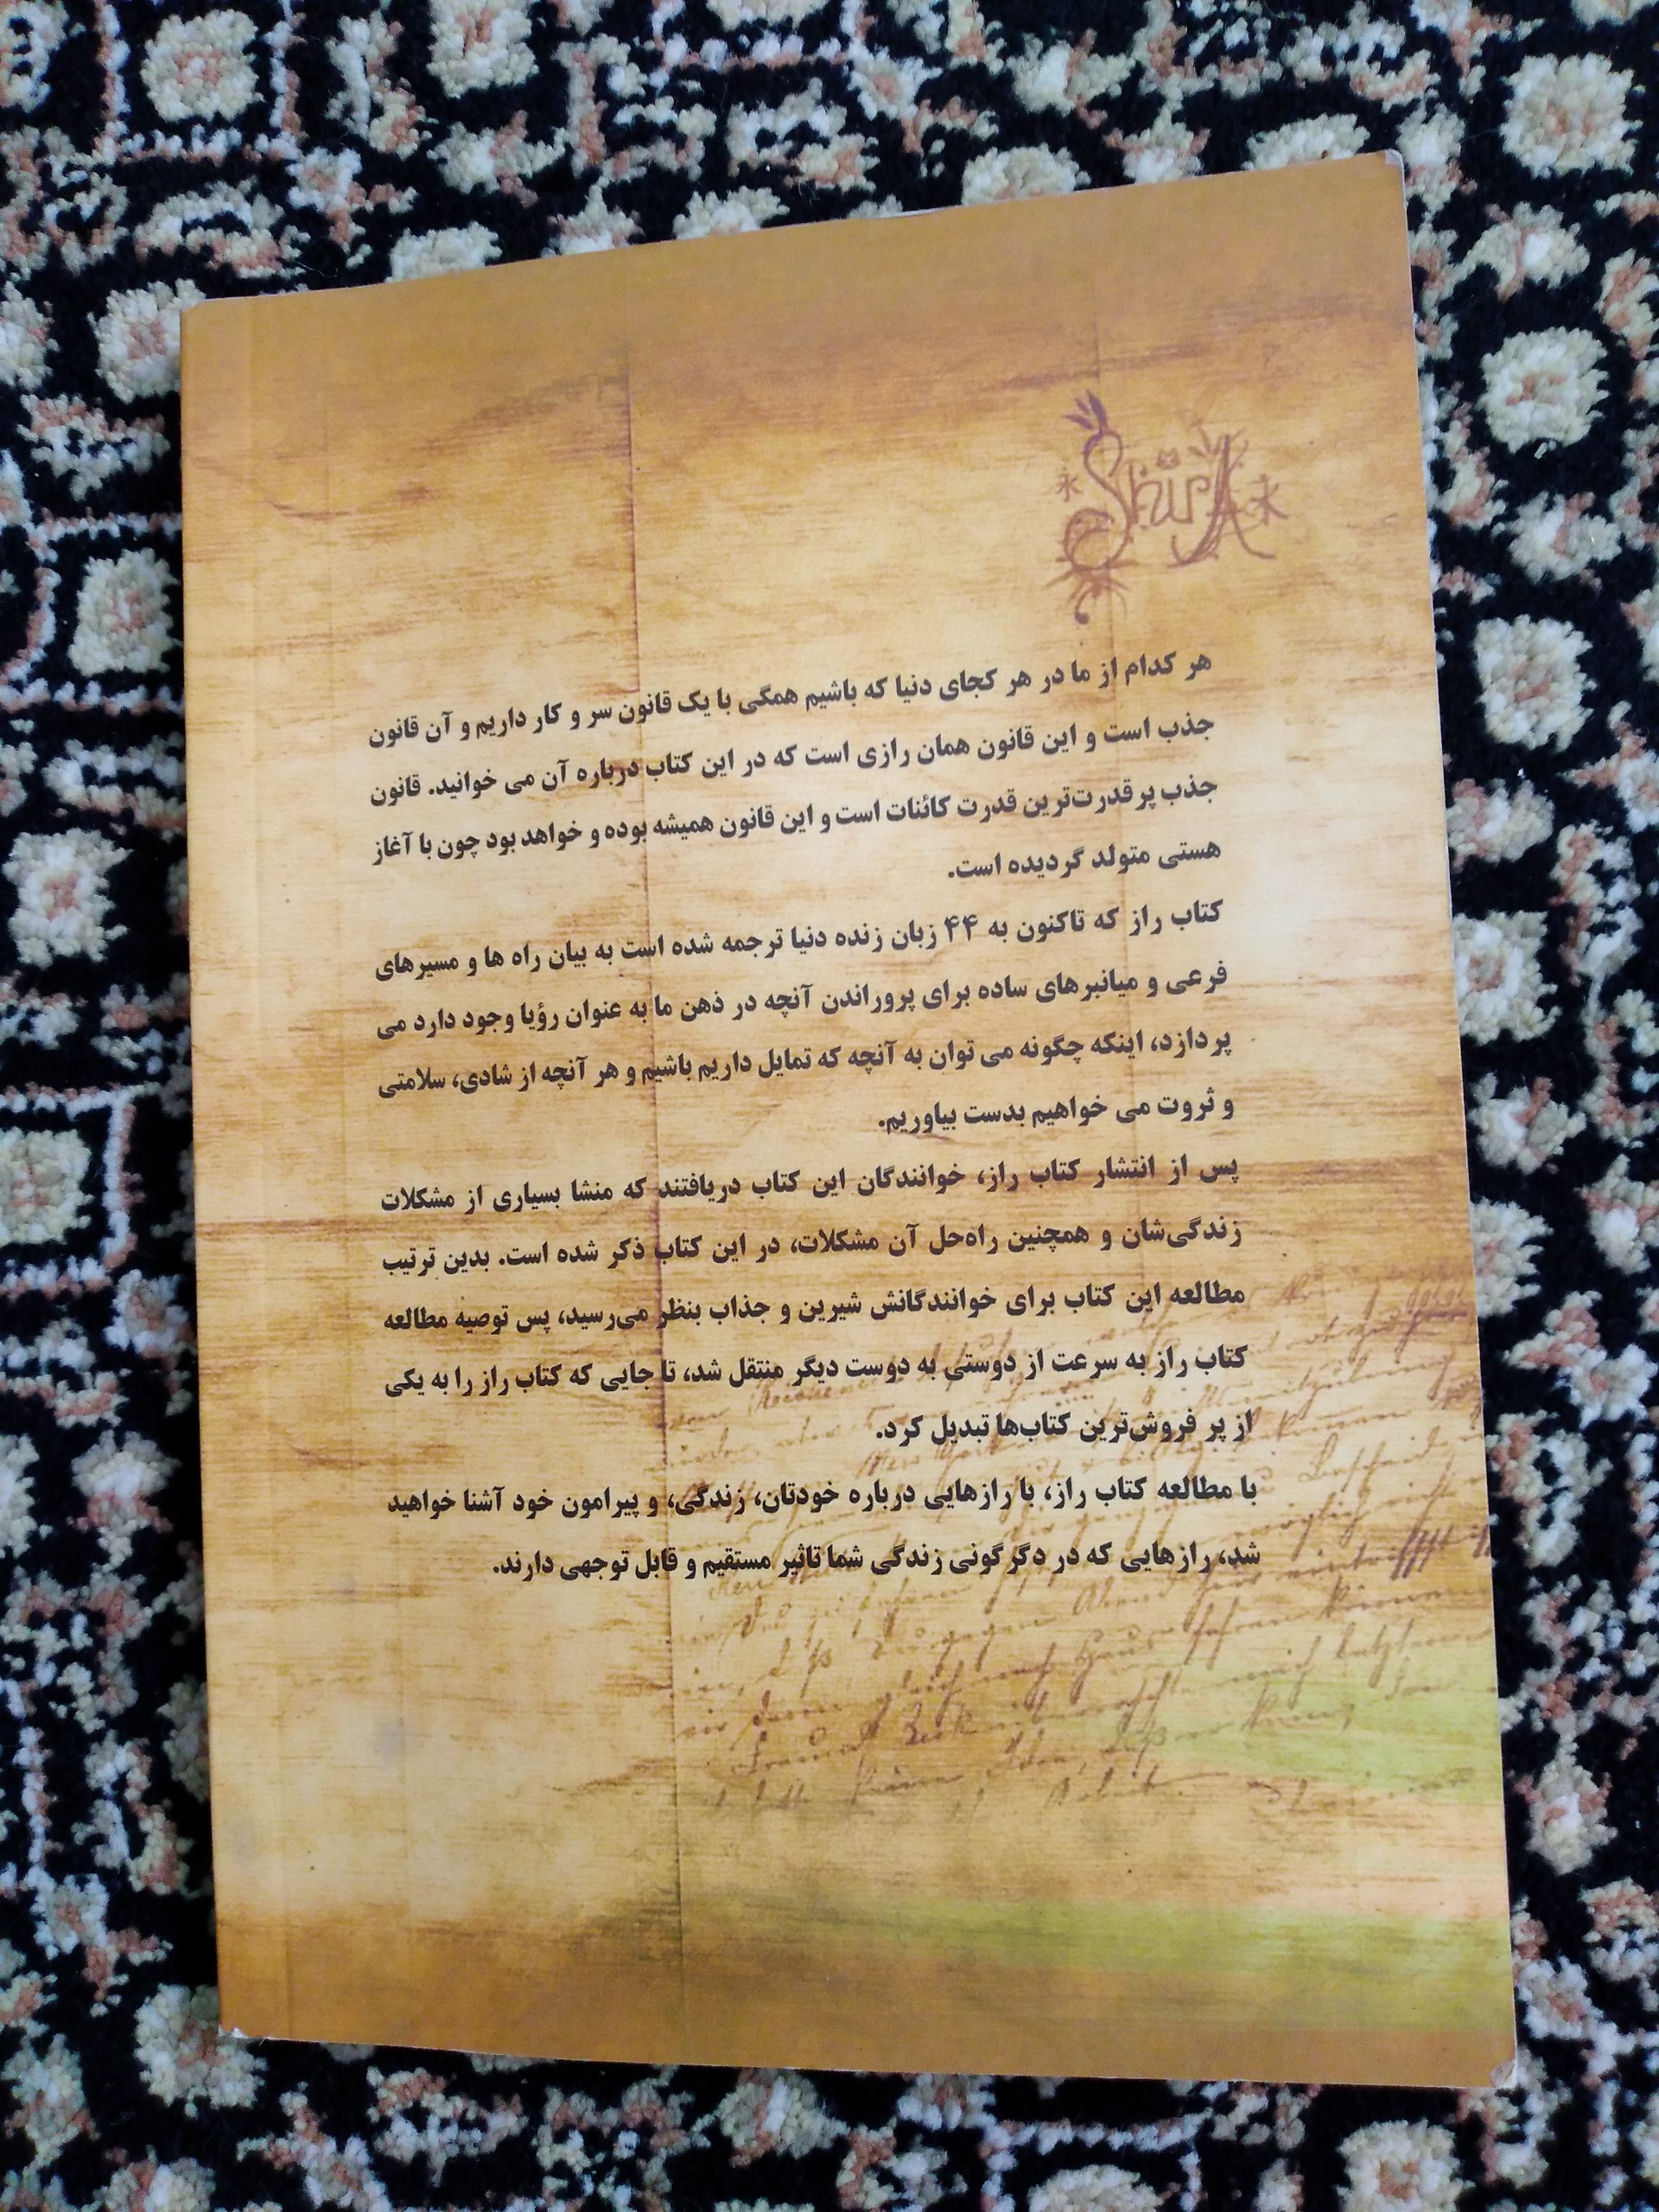 ShirA
هر کدام از ما در هر کجای دنیا که باشیم همگی با یک قانون سر و کار داریم و آن قانون
جذب است و این قانون همان رازی است که در این کتاب درباره آن می خوانید. قانون
جذب پر قدرت‌ترین قدرت کائنات است و این قانون همیشه بوده و خواهد بود چون با آغاز
هستی متولد گردیده است.
کتاب راز که تاکنون به ۴۴ زبان زنده دنیا ترجمه شده است به بیان راه ها و مسیرهای
فرعی و میانبرهای ساده برای پروراندن آنچه در ذهن ما به عنوان رؤیا وجود دارد می
پردازد، اینکه چگونه می توان به آنچه که تمایل داریم باشیم و هر آنچه از شادی، سلامتی
و ثروت می خواهیم بدست بیاوریم.
پس از انتشار کتاب راز، خوانندگان این کتاب دریافتند که منشا بسیاری از مشکلات
زندگی‌شان و همچنین راه‌حل آن مشکلات، در این کتاب ذکر شده است. بدین ترتیب
مطالعه این کتاب برای خوانندگانش شیرین و جذاب بنظر می‌رسید، پس توصیه مطالعه
کتاب راز به سرعت از دوستی به دوست دیگر منتقل شد، تا جایی که کتاب راز را به یکی
از پر فروش‌ترین کتاب‌ها تبدیل کرد.
با مطالعه کتاب راز، با رازهایی درباره خودتان، زندگی، و پیرامون خود آشنا خواهید
شد، رازهایی که در دگرگونی زندگی شما تاثیر مستقیم و قابل توجهی دارند.